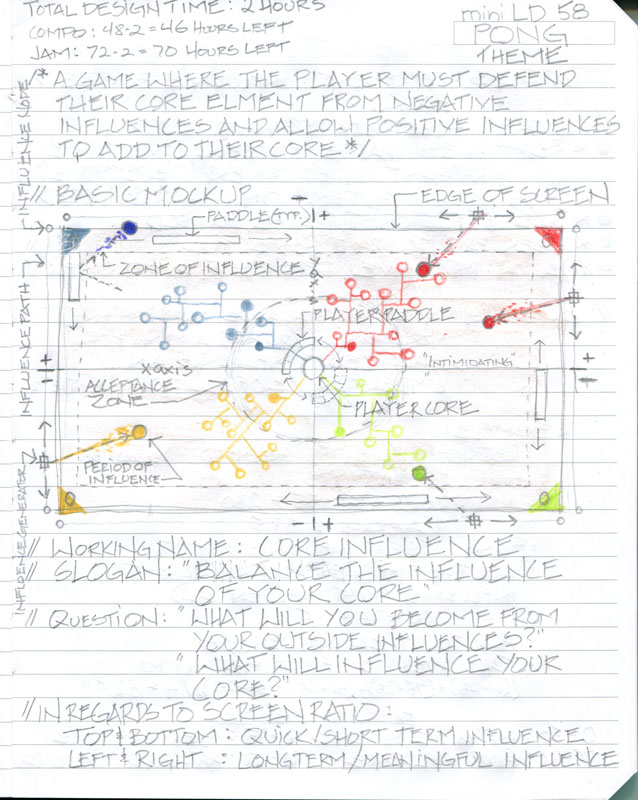 TOTAL DESIGN TIME: 2 HOURS
COMPO: 48-2 = 46 HOURS LEFT
JAM: 72-2 = 70 HOURS LEFT
mini LD 58
PONG
THEME
/* A GAME WHERE THE PLAYER MUST DEFEND
THEIR CORE ELMENT FROM NEGATIVE
INFLUENCES AND ALLOW POSITIVE INFLUENCES
TO ADD TO THEIR CORE */
// BASIC MOCKUP
EDGE OF SCREEN
PADDLE (TYP.)
- | +
INFLUENCE NODE
ZONE OF INFLUENCE
PLAYER PADDLE
INFLUENCE PATH
X axis
"INTIMIDATING"
ACCEPTANCE
ZONE
PLAYER CORE
PERIOD OF
INFLUENCE
INFLUENCE GENERATER
- | +
// WORKING NAME: CORE INFLUENCE
// SLOGAN: "BALANCE THE INFLUENCE
OF YOUR CORE"
// QUESTION: "WHAT WILL YOU BECOME FROM
YOUR OUTSIDE INFLUENCES?"
"WHAT WILL INFLUENCE YOUR
CORE?"
// IN REGARDS TO SCREEN RATIO:
TOP & BOTTOM: QUICK/SHORT TERM INFLUENCE
LEFT & RIGHT: LONGTERM/MEANINGFUL INFLUENCE